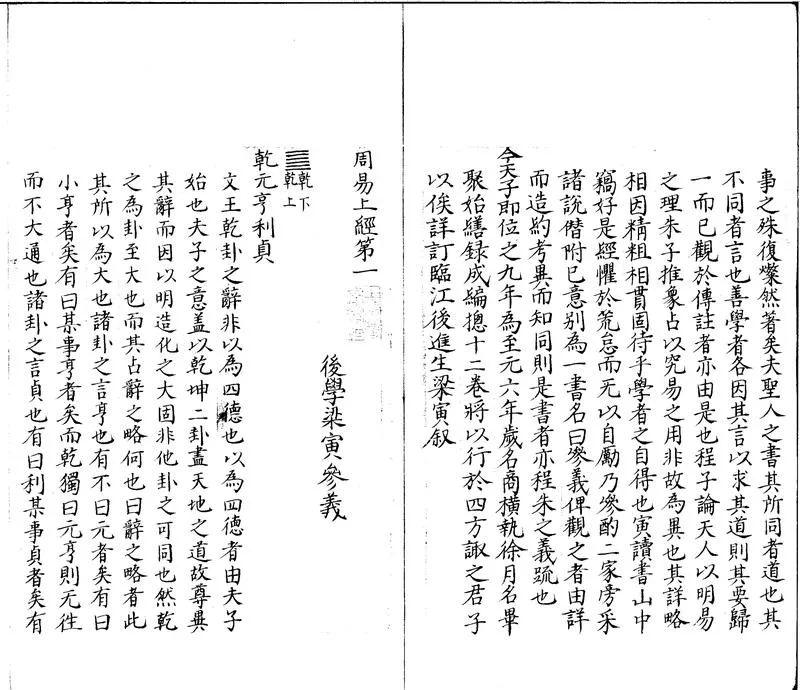 事之殊復燦然著矣夫聖人之書其所同者道也其
不同者言也善學者各因其言以求其道則其要歸
一而已觀於傳註者亦由是也程子論天人以明易
之理朱子推象占以究易之用非故為異也其詳略
相因精粗相貫固待乎學者之自得也寅讀書山中
竊好是經懼於荒怠而无以自勵乃參酌二家旁采
諸說僣附已意别為一書名曰參義俾觀之者由詳
而造約考異而知同則是書者亦程朱之義䟽也
今天子即位之九年為至元六年歲名商橫執徐月名畢
聚始繕録成編揔十二卷將以行於四方諏之君子
以俟詳訂臨江後進生梁寅叙
周易上經第一
後學梁寅參義
䷀乾下
乾上
乾元亨利貞
文王乾卦之辭非以為四德也以為四德者由夫子
始也夫子之意盖以乾坤二卦盡天地之道故尊異
其辭而因以明造化之大固非他卦之可同也然乾
之為卦至大也而其占辭之略何也曰辭之略者此
其所以為大也諸卦之言亨也有不曰元者矣有曰
小亨者矣有曰某事亨者矣而乾獨曰元亨則无徃
而不大通也諸卦之言貞也有曰利某事貞者矣有